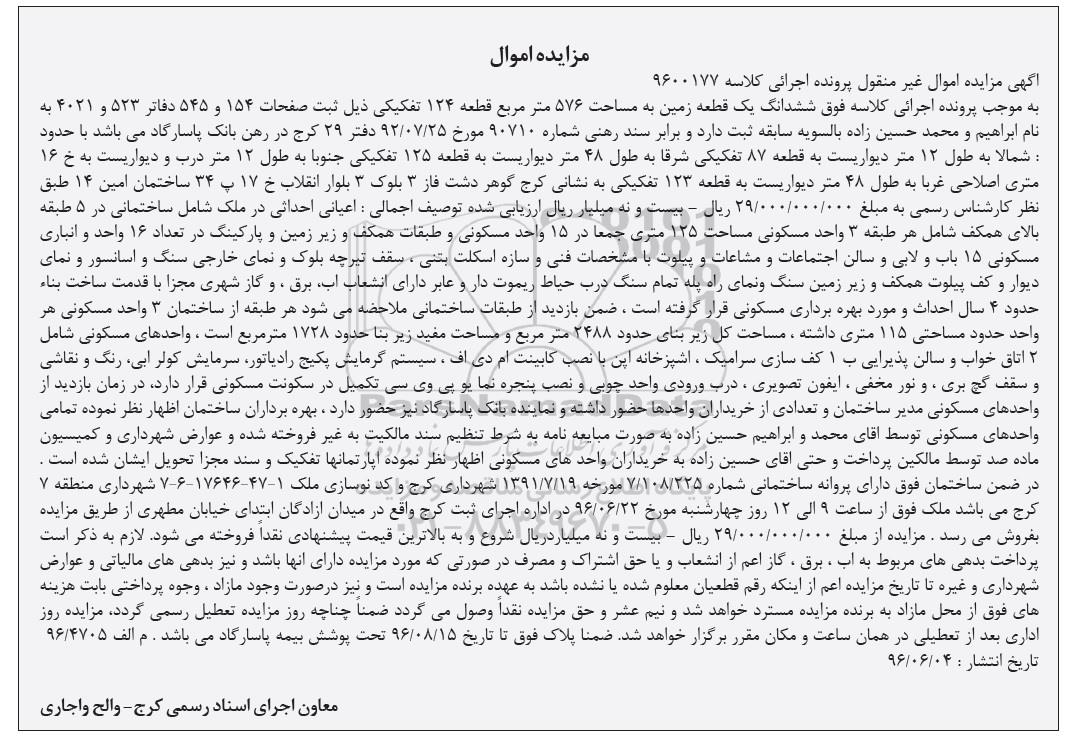 مزایده اموال
اگهی مزایده اموال غیر منقول پرونده اجرائی کلاسه ۹۶۰۰۱۷۷
به موجب پرونده اجرائی کلاسه فوق ششدانگ یک قطعه زمین به مساحت ۵۷۶ متر مربع قطعه ۱۲۴ تفکیکی ذیل ثبت صفحات ۱۵۴ و ۵۴۵ دفاتر ۵۲۳ و ۴۰۲۱ به
نام ابراهیم و محمد حسین زاده بالسویه سابقه ثبت دارد و برابر سند رهنی شماره ۹۰۷۱۰ مورخ ۹۲/۰۷/۲۵ دفتر ۲۹ کرج در رهن بانک پاسارگاد می باشد با حدود
: شمالا به طول ۱۲ متر دیواریست به قطعه ۸۷ تفکیکی شرقا به طول ۴۸ متر دیواریست به قطعه ۱۲۵ تفکیکی جنوبا به طول ۱۲ متر درب و دیواریست به خ ۱۶
متری اصلاحی غربا به طول ۴۸ متر دیواریست به قطعه ۱۲۳ تفکیکی به نشانی کرج گوهر دشت فاز ۳ بلوک ۳ بلوار انقلاب خ ۱۷ پ ۳۴ ساختمان امین ۱۴ طبق
نظر کارشناس رسمی به مبلغ ۲۹/۰۰۰/۰۰۰/۰۰۰ ریال – بیست و نه میلیار ریال ارزیابی شده توصیف اجمالی : اعیانی احداثی در ملک شامل ساختمانی در ۵ طبقه
بالای همکف شامل هر طبقه ۳ واحد مسکونی مساحت ۱۲۵ متری جمعا در ۱۵ واحد مسکونی و طبقات همکف و زیر زمین و پارکینگ در تعداد ۱۶ واحد و انباری
مسکونی ۱۵ باب و لابی و سالن اجتماعات و مشاعات و پیلوت با مشخصات فنی و سازه اسکلت بتنی ، سقف تیرچه بلوک و نمای خارجی سنگ و اسانسور و نمای
دیوار و کف پیلوت همکف و زیر زمین سنگ ونمای راه پله تمام سنگ درب حیاط ریموت دار و عابر دارای انشعاب اب، برق ، و گاز شهری مجزا با قدمت ساخت بناء
حدود ۴ سال احداث و مورد بهره برداری مسکونی قرار گرفته است ، ضمن بازدید از طبقات ساختمانی ملاحضه می شود هر طبقه از ساختمان ۳ واحد مسکونی هر
واحد حدود مساحتی ۱۱۵ متری داشته ، مساحت کل زیر بنای حدود ۲۴۸۸ متر مربع و مساحت مفید زیر بنا حدود ۱۷۲۸ مترمربع است ، واحدهای مسکونی شامل
۲ اتاق خواب و سالن پذیرایی ب ۱ کف سازی سرامیک ، اشپزخانه اپن با نصب کابینت ام دی اف ، سیستم گرمایش پکیج رادیاتور، سرمایش کولر ابی، رنگ و نقاشی
و سقف گچ بری ، و نور مخفی ، ایفون تصویری ، درب ورودی واحد چوبی و نصب پنجره نما یو پی وی سی تکمیل در سکونت مسکونی قرار دارد، در زمان بازدید از
واحدهای مسکونی مدیر ساختمان و تعدادی از خریداران واحدها حضور داشته و نماینده بانک پاسارگاد نیز حضور دارد ، بهره برداران ساختمان اظهار نظر نموده تمامی
واحدهای مسکونی توسط اقای محمد و ابراهیم حسین زاده به صورت مبایعه نامه به شرط تنظیم سند مالکیت به غیر فروخته شده و عوارض شهرداری و کمیسیون
ماده صد توسط مالکین پرداخت و حتی اقای حسین زاده به خریداران واحد های مسکونی اظهار نظر نموده آپارتمانها تفکیک و سند مجزا تحویل ایشان شده است .
در ضمن ساختمان فوق دارای پروانه ساختمانی شماره ۷/۱۰۸/۲۲۵ مورخه ۱۳۹۱/۷/۱۹ شهرداری کرج و کد نوسازی ملک ۱-۴۷-۱۷۶۴۶-۶-۷ شهرداری منطقه ۷
کرج می باشد ملک فوق از ساعت ۹ الی ۱۲ روز چهارشنبه مورخ ۹۶/۰۶/۲۲ در اداره اجرای ثبت کرج واقع در میدان ازادگان ابتدای خیابان مطهری از طریق مزایده
بفروش می رسد . مزایده از مبلغ ۲۹/۰۰۰/۰۰۰/۰۰۰ ریال – بیست و نه میلیاردریال شروع و به بالاترین قیمت پیشنهادی نقداً فروخته می شود. لازم به ذکر است
پرداخت بدهی های مربوط به اب ، برق ، گاز اعم از انشعاب و یا حق اشتراک و مصرف در صورتی که مورد مزایده دارای انها باشد و نیز بدهی های مالیاتی و عوارض
شهرداری و غیره تا تاریخ مزایده اعم از اینکه رقم قطعیان معلوم شده یا نشده باشد به عهده برنده مزایده است و نیز درصورت وجود مازاد ، وجوه پرداختی بابت هزینه
های فوق از محل مازاد به برنده مزایده مسترد خواهد شد و نیم عشر و حق مزایده نقداً وصول می گردد ضمناً چناچه روز مزایده تعطیل رسمی گردد، مزایده روز
اداری بعد از تعطیلی در همان ساعت و مکان مقرر برگزار خواهد شد. ضمنا پلاک فوق تا تاریخ ۹۶/۰۸/۱۵ تحت پوشش بیمه پاسارگاد می باشد . م الف ۹۶/۴۷۰۵
تاریخ انتشار : ۹۶/۰۶/۰۴
معاون اجرای اسناد رسمی کرج- والح واجاری
ParsNamadData
۰۲۱-۸۸۳۴۹۶۷۰-۵